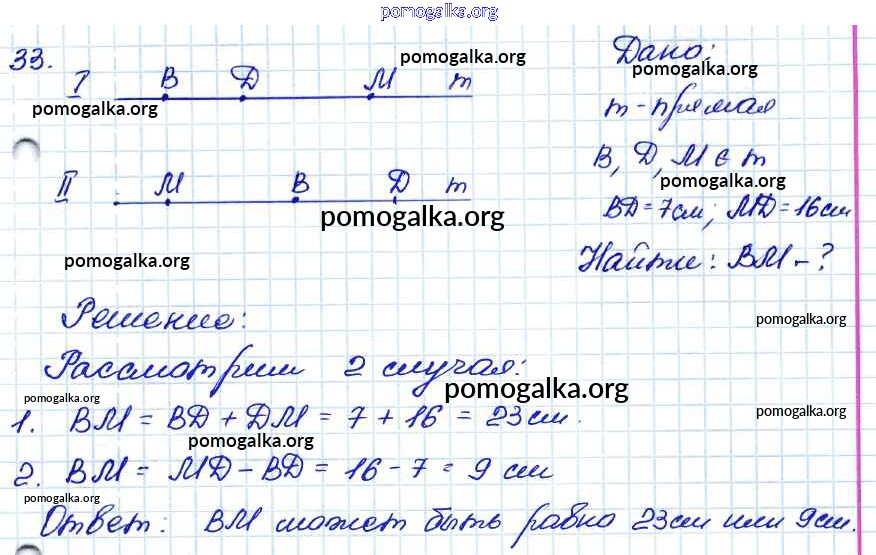 pomogalka.org
33.
I B D M m
pomogalka.org
Дано:
pomogalka.org
pomogalka.org
m - прямая
B, D, M ∈ m
pomogalka.org
II M B D m
pomogalka.org
BD = 7см; MD = 16см
pomogalka.org
Найти: BM - ?
Решение:
pomogalka.org
Рассмотрим 2 случая:
pomogalka.org
pomogalka.org
pomogalka.org
1. BM = BD + DM = 7 + 16 = 23см.
pomogalka.org
2. BM = MD - BD = 16 - 7 = 9 см
pomogalka.org
Ответ: BM может быть равно 23см или 9см.